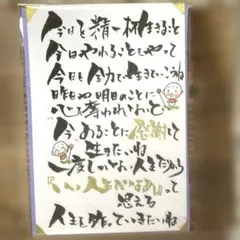 今日を精一杯生きること
今日やれることをやって
今日を全力で生きていこうね
昨日や明日のことに
心を奪われないで
今あることに感謝して
生きたいね
一度しかない人生だから
『いい人生だなあ』って
思える
人生を歩っていきたいね